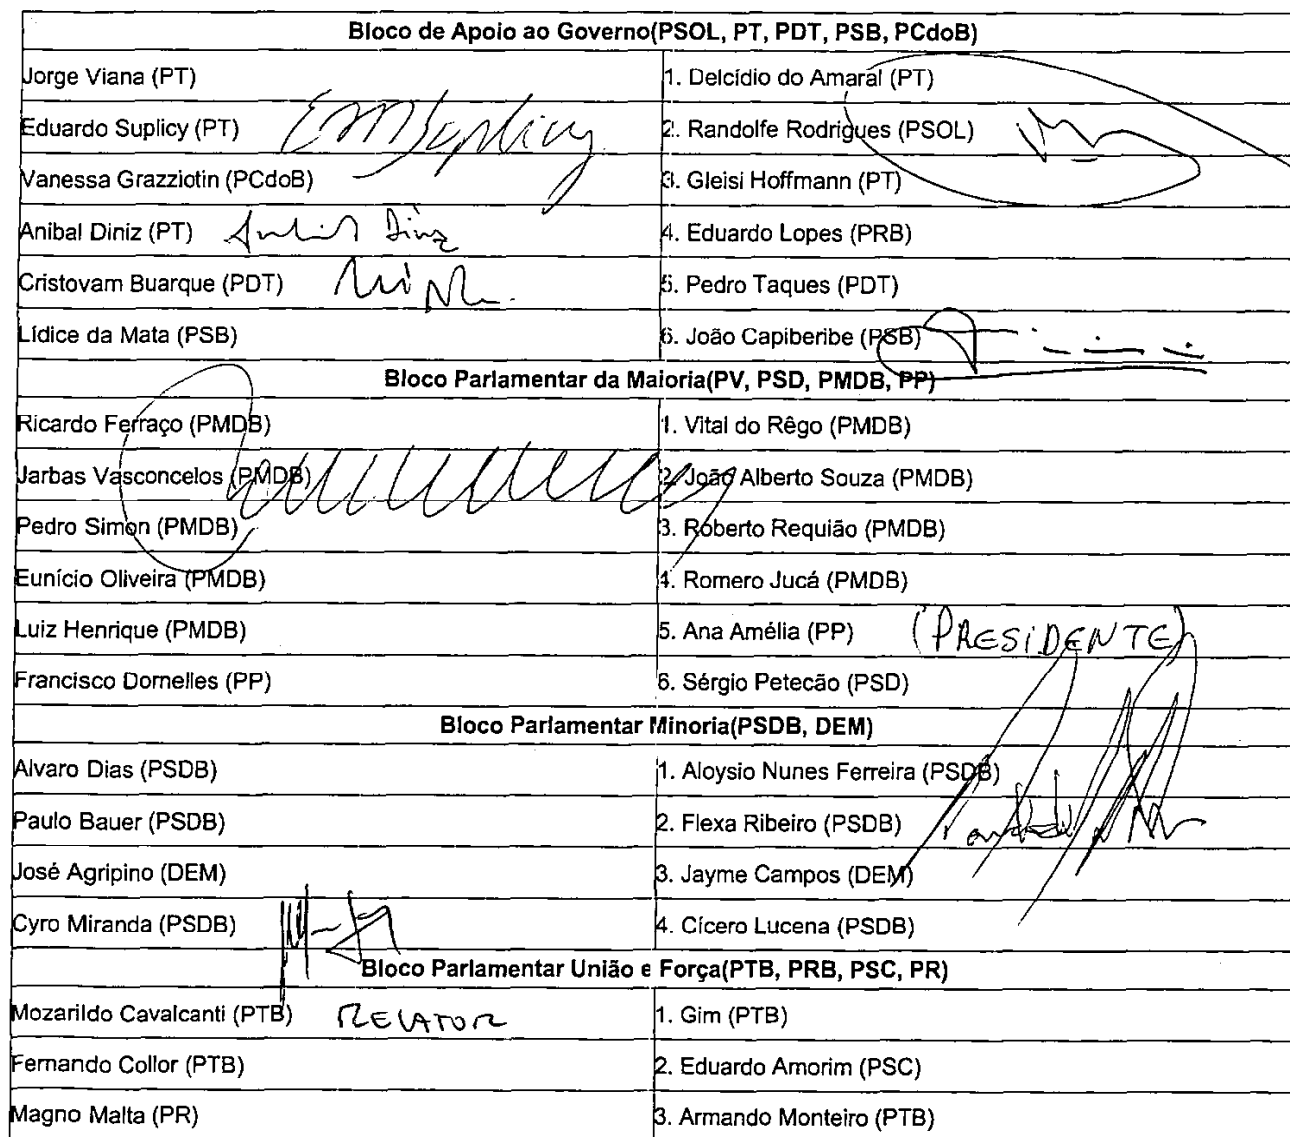 Bloco de Apoio ao Governo(PSOL, PT, PDT, PSB, PCdoB)
Jorge Viana (PT) 1. Delcídio do Amaral (PT)
Eduardo Suplicy (PT) EMSuplicy 2. Randolfe Rodrigues (PSOL)
Vanessa Grazziotin (PCdoB) 3. Gleisi Hoffmann (PT)
Anibal Diniz (PT) Anibal Diniz 4. Eduardo Lopes (PRB)
Cristovam Buarque (PDT) 5. Pedro Taques (PDT)
Lídice da Mata (PSB) 6. João Capiberibe (PSB)
Bloco Parlamentar da Maioria(PV, PSD, PMDB, PP)
Ricardo Ferraço (PMDB) 1. Vital do Rêgo (PMDB)
Jarbas Vasconcelos (PMDB) 2. João Alberto Souza (PMDB)
Pedro Simon (PMDB) 3. Roberto Requião (PMDB)
Eunício Oliveira (PMDB) 4. Romero Jucá (PMDB)
Luiz Henrique (PMDB) 5. Ana Amélia (PP) (PRESIDENTE)
Francisco Dornelles (PP) 6. Sérgio Petecão (PSD)
Bloco Parlamentar Minoria(PSDB, DEM)
Alvaro Dias (PSDB) 1. Aloysio Nunes Ferreira (PSDB)
Paulo Bauer (PSDB) 2. Flexa Ribeiro (PSDB)
José Agripino (DEM) 3. Jayme Campos (DEM)
Cyro Miranda (PSDB) 4. Cícero Lucena (PSDB)
Bloco Parlamentar União e Força(PTB, PRB, PSC, PR)
Mozarildo Cavalcanti (PTB) RELATOR 1. Gim (PTB)
Fernando Collor (PTB) 2. Eduardo Amorim (PSC)
Magno Malta (PR) 3. Armando Monteiro (PTB)